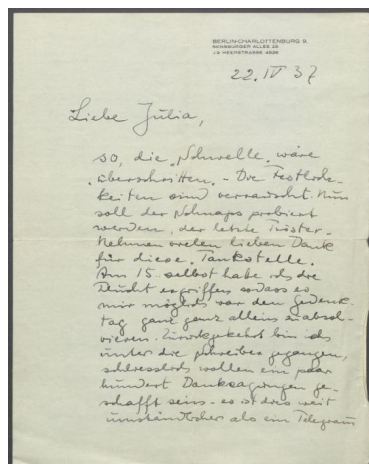 BERLIN-CHARLOTTENBURG 9,
ALLEE 25
J 9 HEERSTRASSE 4928
22. IV 37
Liebe Julia,
so, die „Schwelle" wäre
überschritten. - Die Festlich-
keiten sind verrauscht. Nun
soll der Schnaps probiert
werden, der letzte Tröster.
Nehmen vielen lieben Dank
für diese „Tankstelle".
Am 15. selbst habe ich die
Flucht ergriffen sodass es
mir möglich war den Gedenk-
tag ganz ganz allein zu absol-
vieren. Zurückgekehrt bin ich
unter die Schreiber gegangen,
schliesslich wollen ein paar
hundert Danksagungen ge-
schafft sein - es ist dies weit
umständlicher als ein Telegramm